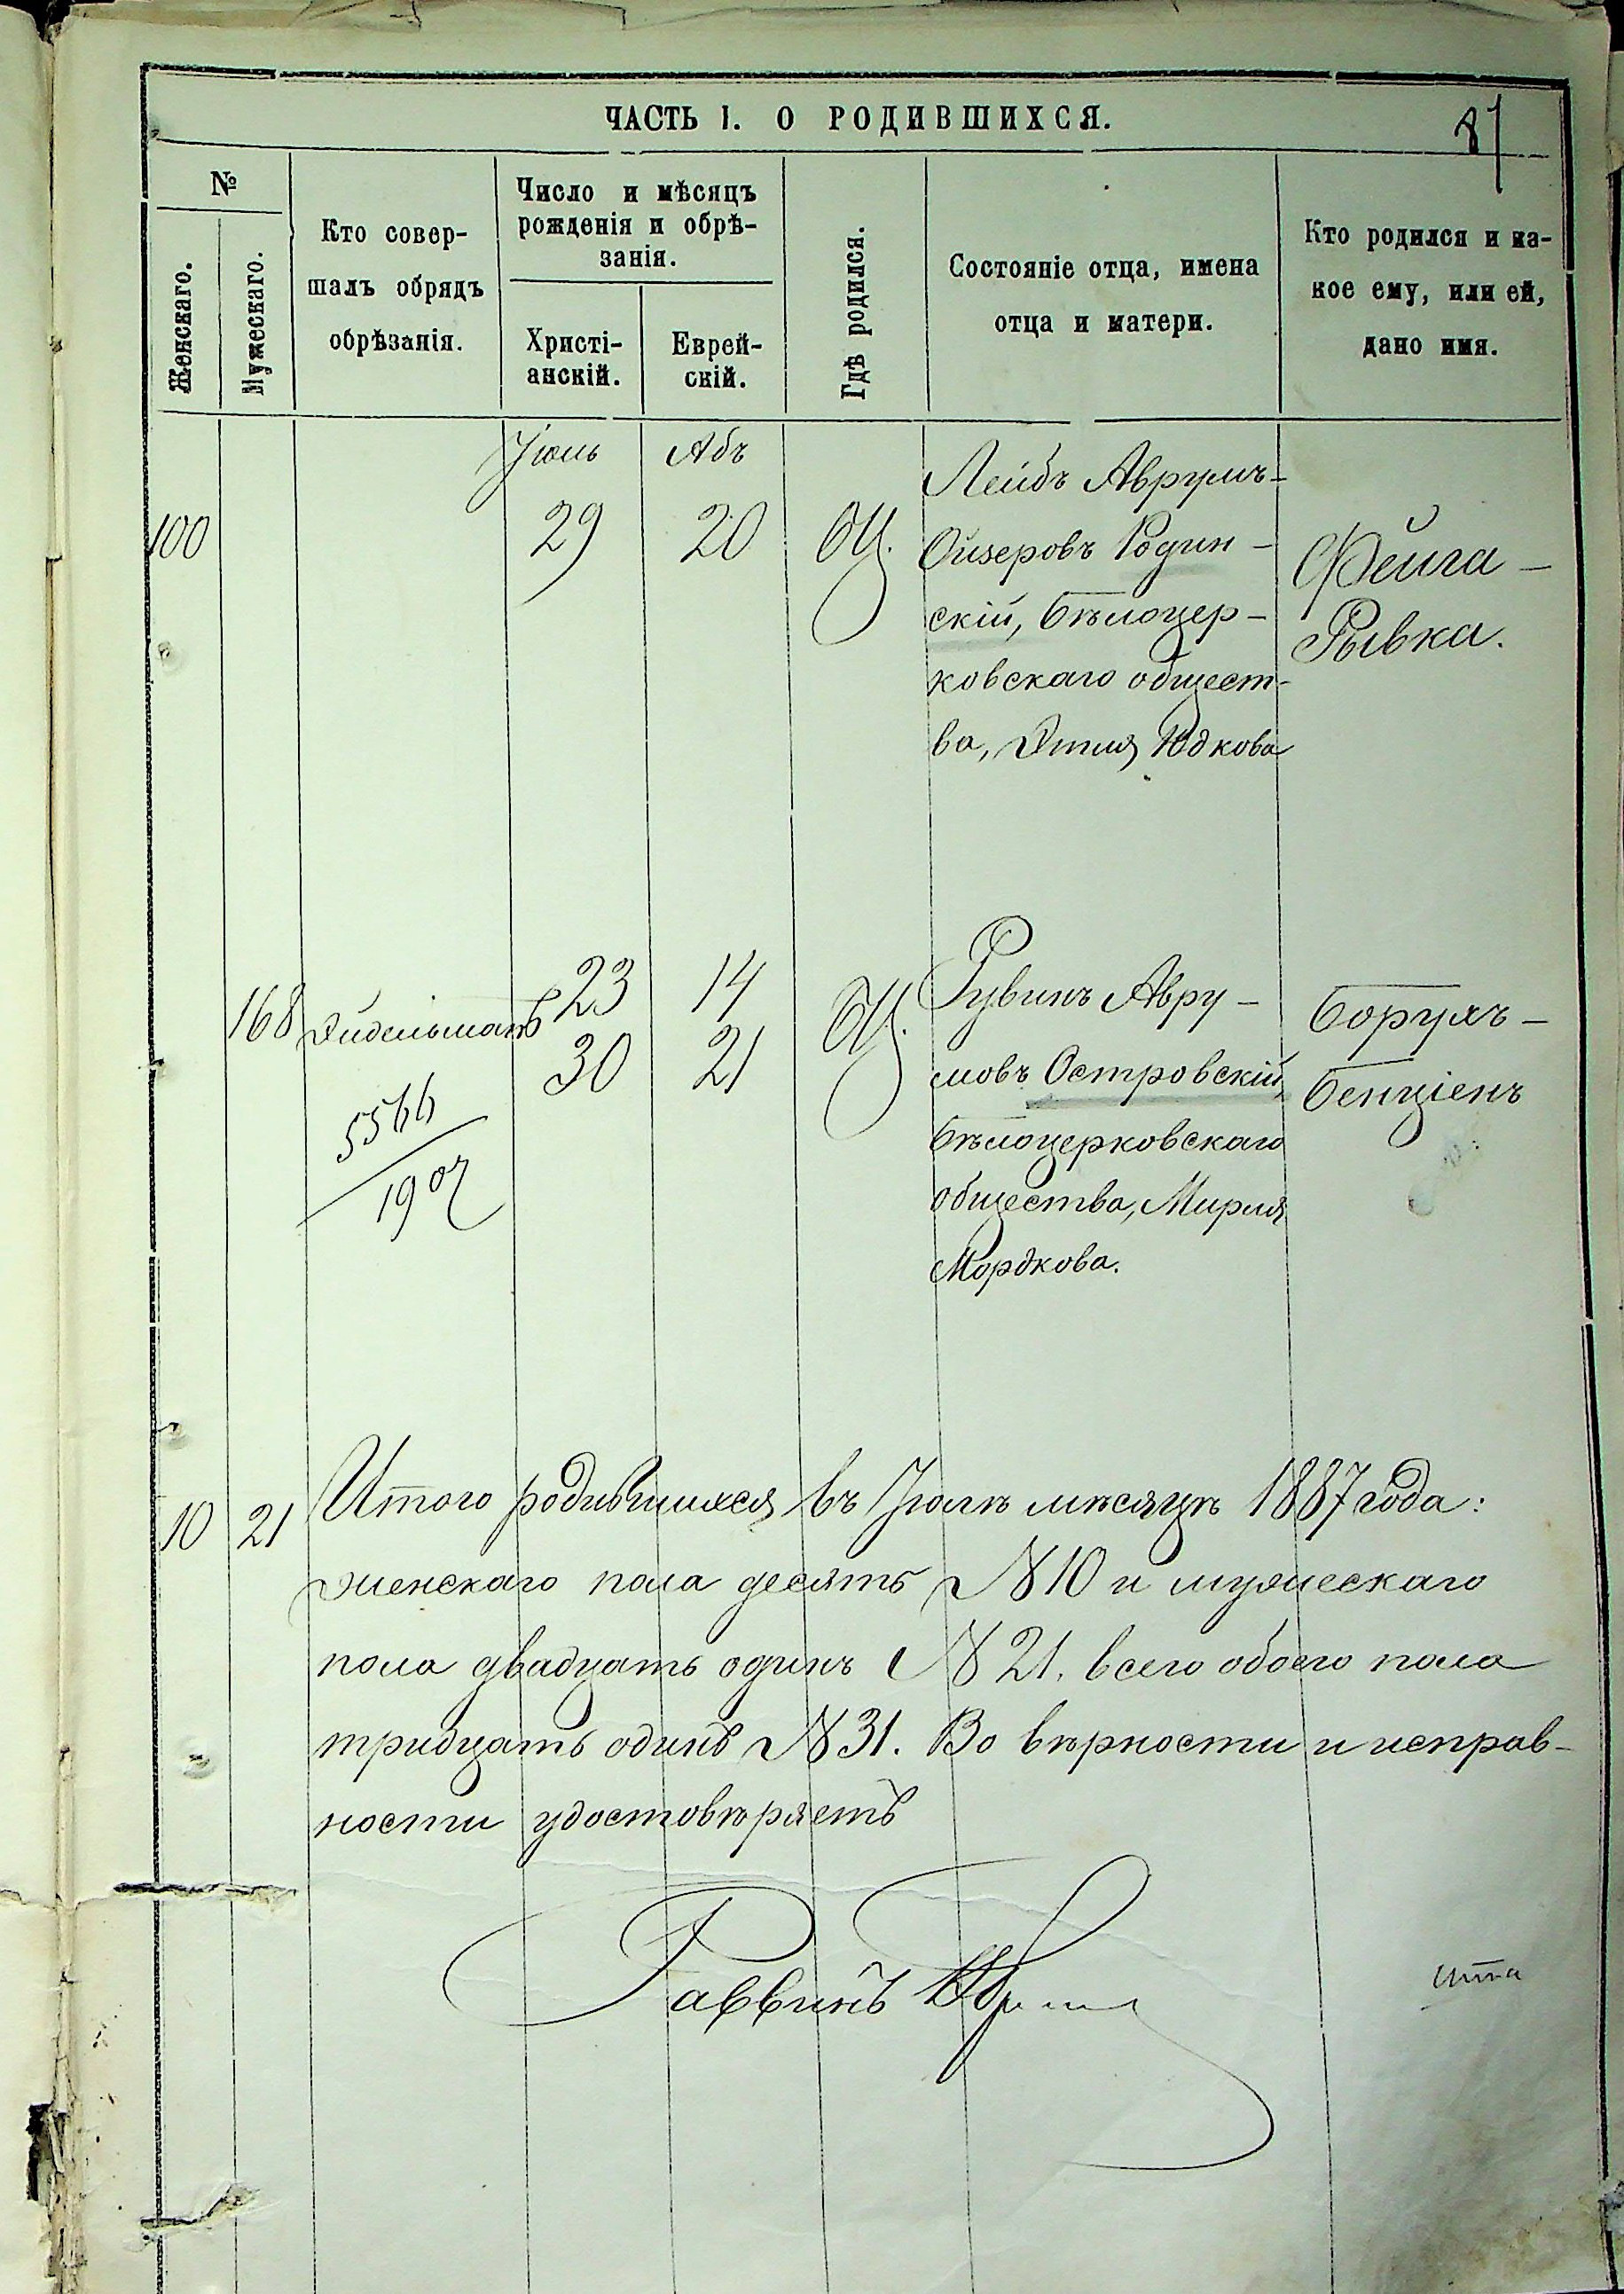 ЧАСТЬ I. О РОДИВШИХСЯ.
87
№
Женскаго.
Мужескаго.
Кто совер-
шалъ обрядъ
обрѣзанія.
Число и мѣсяцъ
рожденія и обрѣ-
занія.
Христі-
анскій.
Еврей-
скій.
Гдѣ родился.
Состояніе отца, имена
отца и матери.
Кто родился и ка-
кое ему, или ей,
дано имя.
Іюль
Абъ
100
29
20
БЦ.
Лейбъ Аврумъ-
Ойзеровъ Родин-
скій, Бѣлоцер-
ковскаго общест-
ва, Этля Юдкова
Фейга-
Рывка.
168
Эйдельманъ
5566
1907
23
30
14
21
БЦ.
Рувинъ Авру-
мовъ Островскій,
Бѣлоцерковскаго
общества, Мирля
Мордкова.
Борухъ-
Бенціенъ
10
21
Итого родившихся въ Іюлѣ мѣсяцѣ 1887 года:
женскаго пола десять №10 и мужескаго
пола двадцать одинъ №21, всего обоего пола
тридцать одинъ №31. Во вѣрности и исправ-
ности удостовѣряетъ
Раввинъ